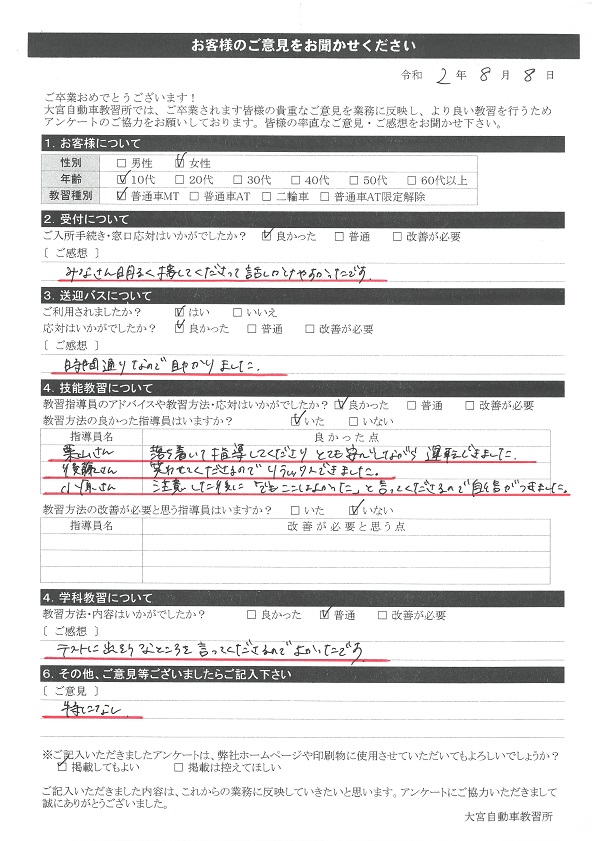 お客様のご意見をお聞かせください
令和 2 年 8 月 8 日
ご卒業おめでとうございます！
大宮自動車教習所では、ご卒業されます皆様の貴重なご意見を業務に反映し、より良い教習を行うため
アンケートのご協力をお願いしております。皆様の率直なご意見・ご感想をお聞かせ下さい。
1. お客様について
性別 □ 男性 ☑ 女性
年齢 ☑ 10代 □ 20代 □ 30代 □ 40代 □ 50代 □ 60代以上
教習種別 ☑ 普通車MT □ 普通車AT □ 二輪車 □ 普通車AT限定解除
2. 受付について
ご入所手続き・窓口応対はいかがでしたか？ ☑ 良かった □ 普通 □ 改善が必要
〔 ご感想 〕
みなさん明るく接してくださって話しかけやすかったです。
3. 送迎バスについて
ご利用されましたか？ ☑ はい □ いいえ
応対はいかがでしたか？ ☑ 良かった □ 普通 □ 改善が必要
〔 ご感想 〕
時間通りなので助かりました。
4. 技能教習について
教習指導員のアドバイスや教習方法・応対はいかがでしたか？ ☑ 良かった □ 普通 □ 改善が必要
教習方法の良かった指導員はいますか？ ☑ いた □ いない
指導員名 良かった点
栗山さん 落ち着いて指導してくださりとても安心しながら運転できました。
後藤さん 笑わせてくださるのでリラックスできました。
小原さん 注意した後に「でもここはよかった」と言ってくださるので自信がつきました。
教習方法の改善が必要と思う指導員はいますか？ □ いた ☑ いない
指導員名 改善が必要と思う点
4. 学科教習について
教習方法・内容はいかがでしたか？ □ 良かった ☑ 普通 □ 改善が必要
〔 ご感想 〕
テストに出そうなところを言ってくださるのでよかったです。
6. その他、ご意見等ございましたらご記入下さい
〔 ご意見 〕
特になし
※ご記入いただきましたアンケートは、弊社ホームページや印刷物に使用させていただいてもよろしいでしょうか？
☑ 掲載してもよい □ 掲載は控えてほしい
ご記入いただきました内容は、これからの業務に反映していきたいと思います。アンケートにご協力いただきまして
誠にありがとうございました。
大宮自動車教習所